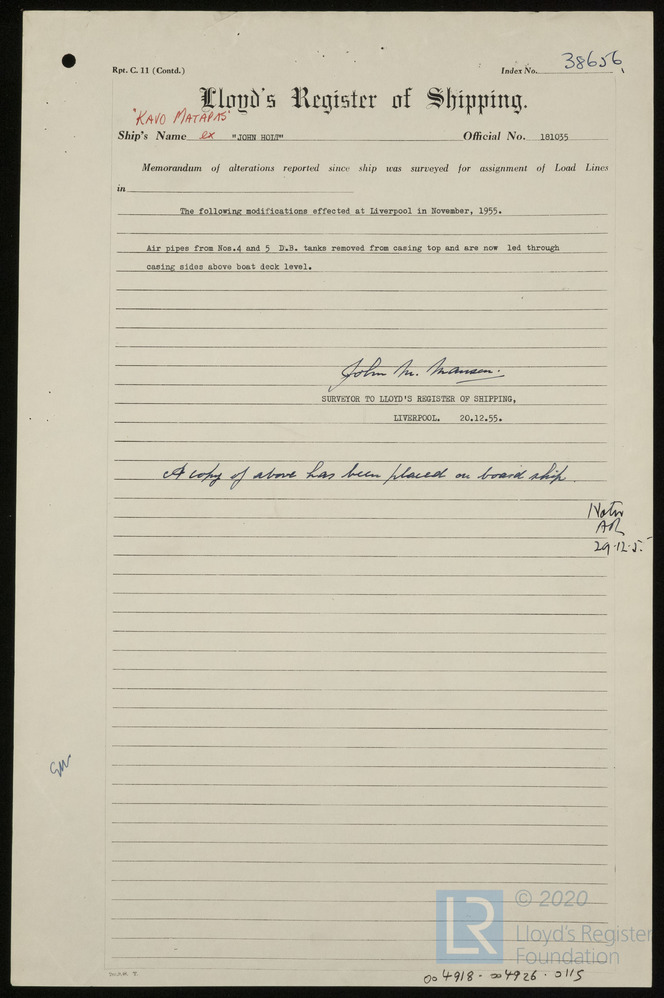 Rpt. C. 11 (Contd.)
Index No. 38656
Lloyd's Register of Shipping.
"KAVO MATAPAS"
Ship's Name ex "JOHN HOLT" Official No. 181035
Memorandum of alterations reported since ship was surveyed for assignment of Load Lines
in
The following modifications effected at Liverpool in November, 1955.
Air pipes from Nos.4 and 5 D.B. tanks removed from casing top and are now led through
casing sides above boat deck level.
John M.
SURVEYOR TO LLOYD'S REGISTER OF SHIPPING,
LIVERPOOL. 20.12.55.
A copy of above has been placed on board ship.
29.12.5
© 2020
LR
Lloyd's Register
Foundation
004918-004926-0115